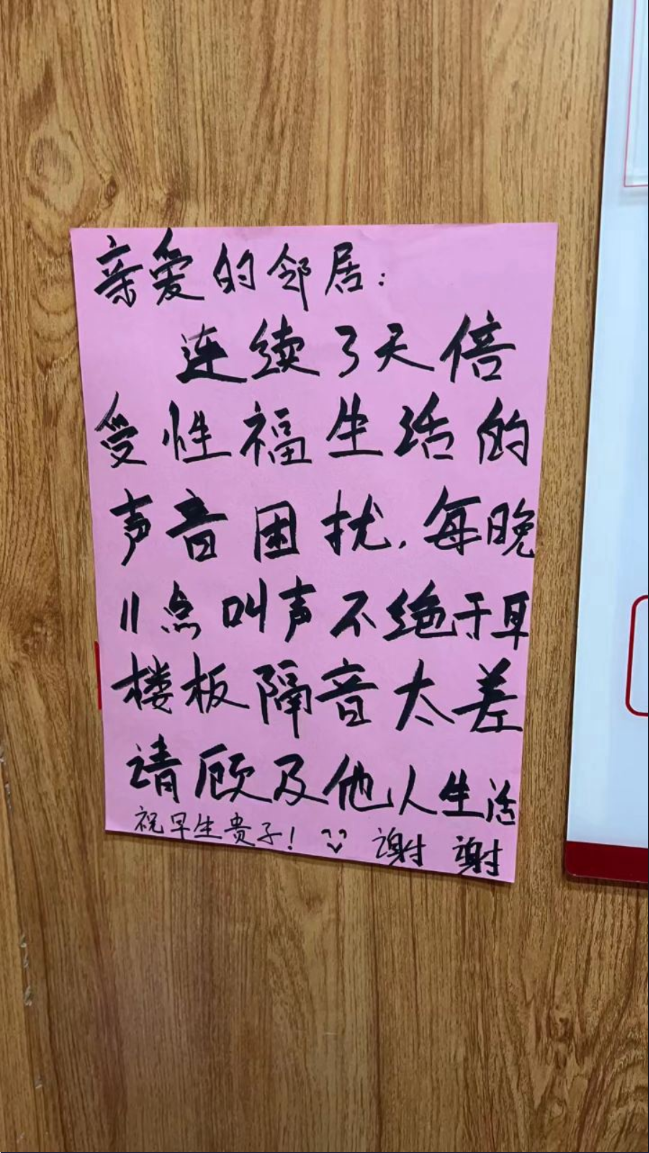 亲爱的邻居：
连续3天倍
受性福生活的
声音困扰，每晚
11点叫声不绝于耳
楼板隔音太差
请顾及他人生活
祝早生贵子！ 谢谢